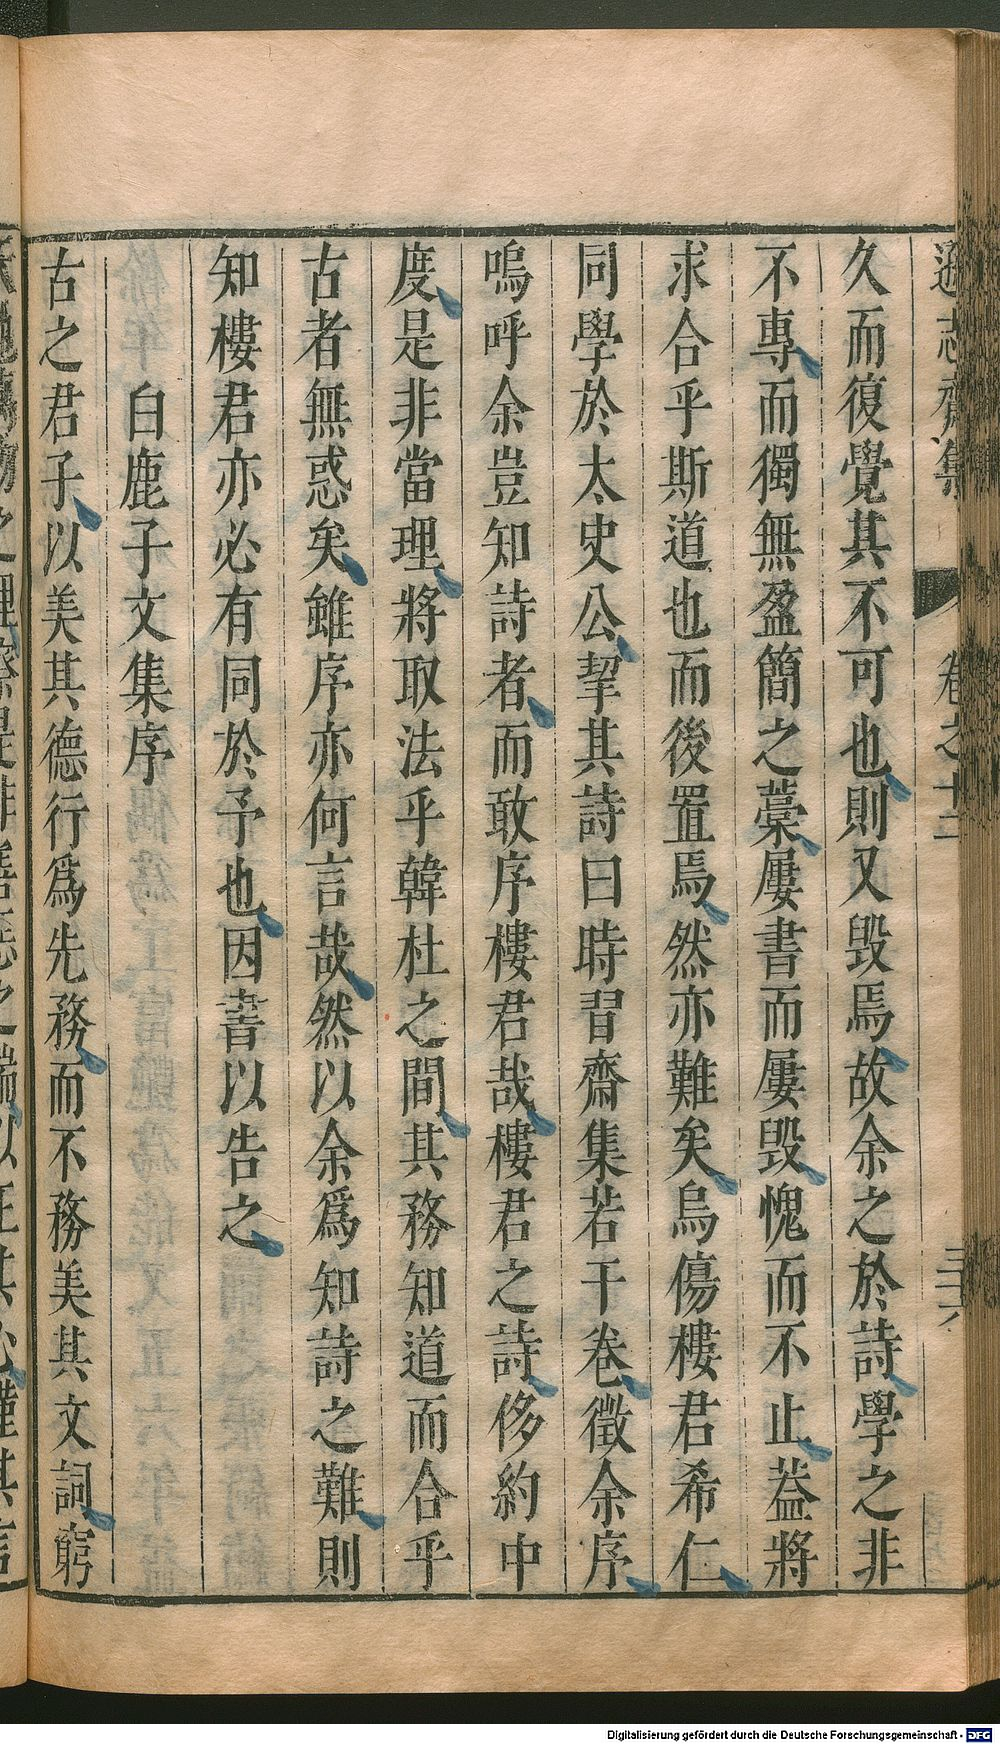 遜志齋集 卷之十二
久而復覺其不可也則又毀焉故余之於詩學之非
不專而獨無盈簡之藁屢書而屢毀愧而不止葢將
求合乎斯道也而後置焉然亦難矣烏傷樓君希仁
同學於太史公挈其詩曰時習齋集若干卷徵余序
嗚呼余豈知詩者而敢序樓君哉樓君之詩侈約中
度是非當理將取法乎韓杜之間其務知道而合乎
古者無惑矣雖序亦何言哉然以余為知詩之難則
知樓君亦必有同於予也因書以告之
白鹿子文集序
古之君子以美其德行爲先務而不務美其文詞窮
Digitalisierung gefördert durch die Deutsche Forschungsgemeinschaft - DFG